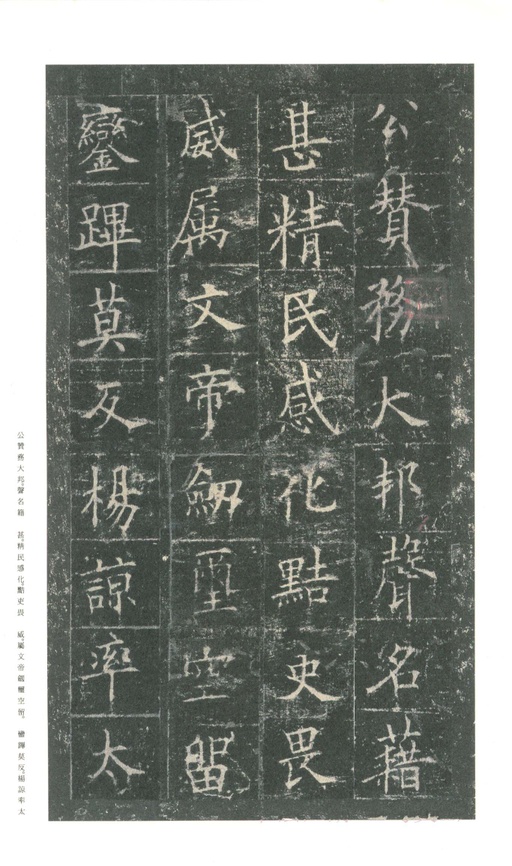 公贊務大邦聲名藉
甚精民感化黠吏畏
威属文帝劒璽空留
鑾蹕莫反楊諒率太
公贊務大邦聲名籍 甚精民感化黠吏畏 威屬文帝劒璽空留 鑾蹕莫反楊諒率太